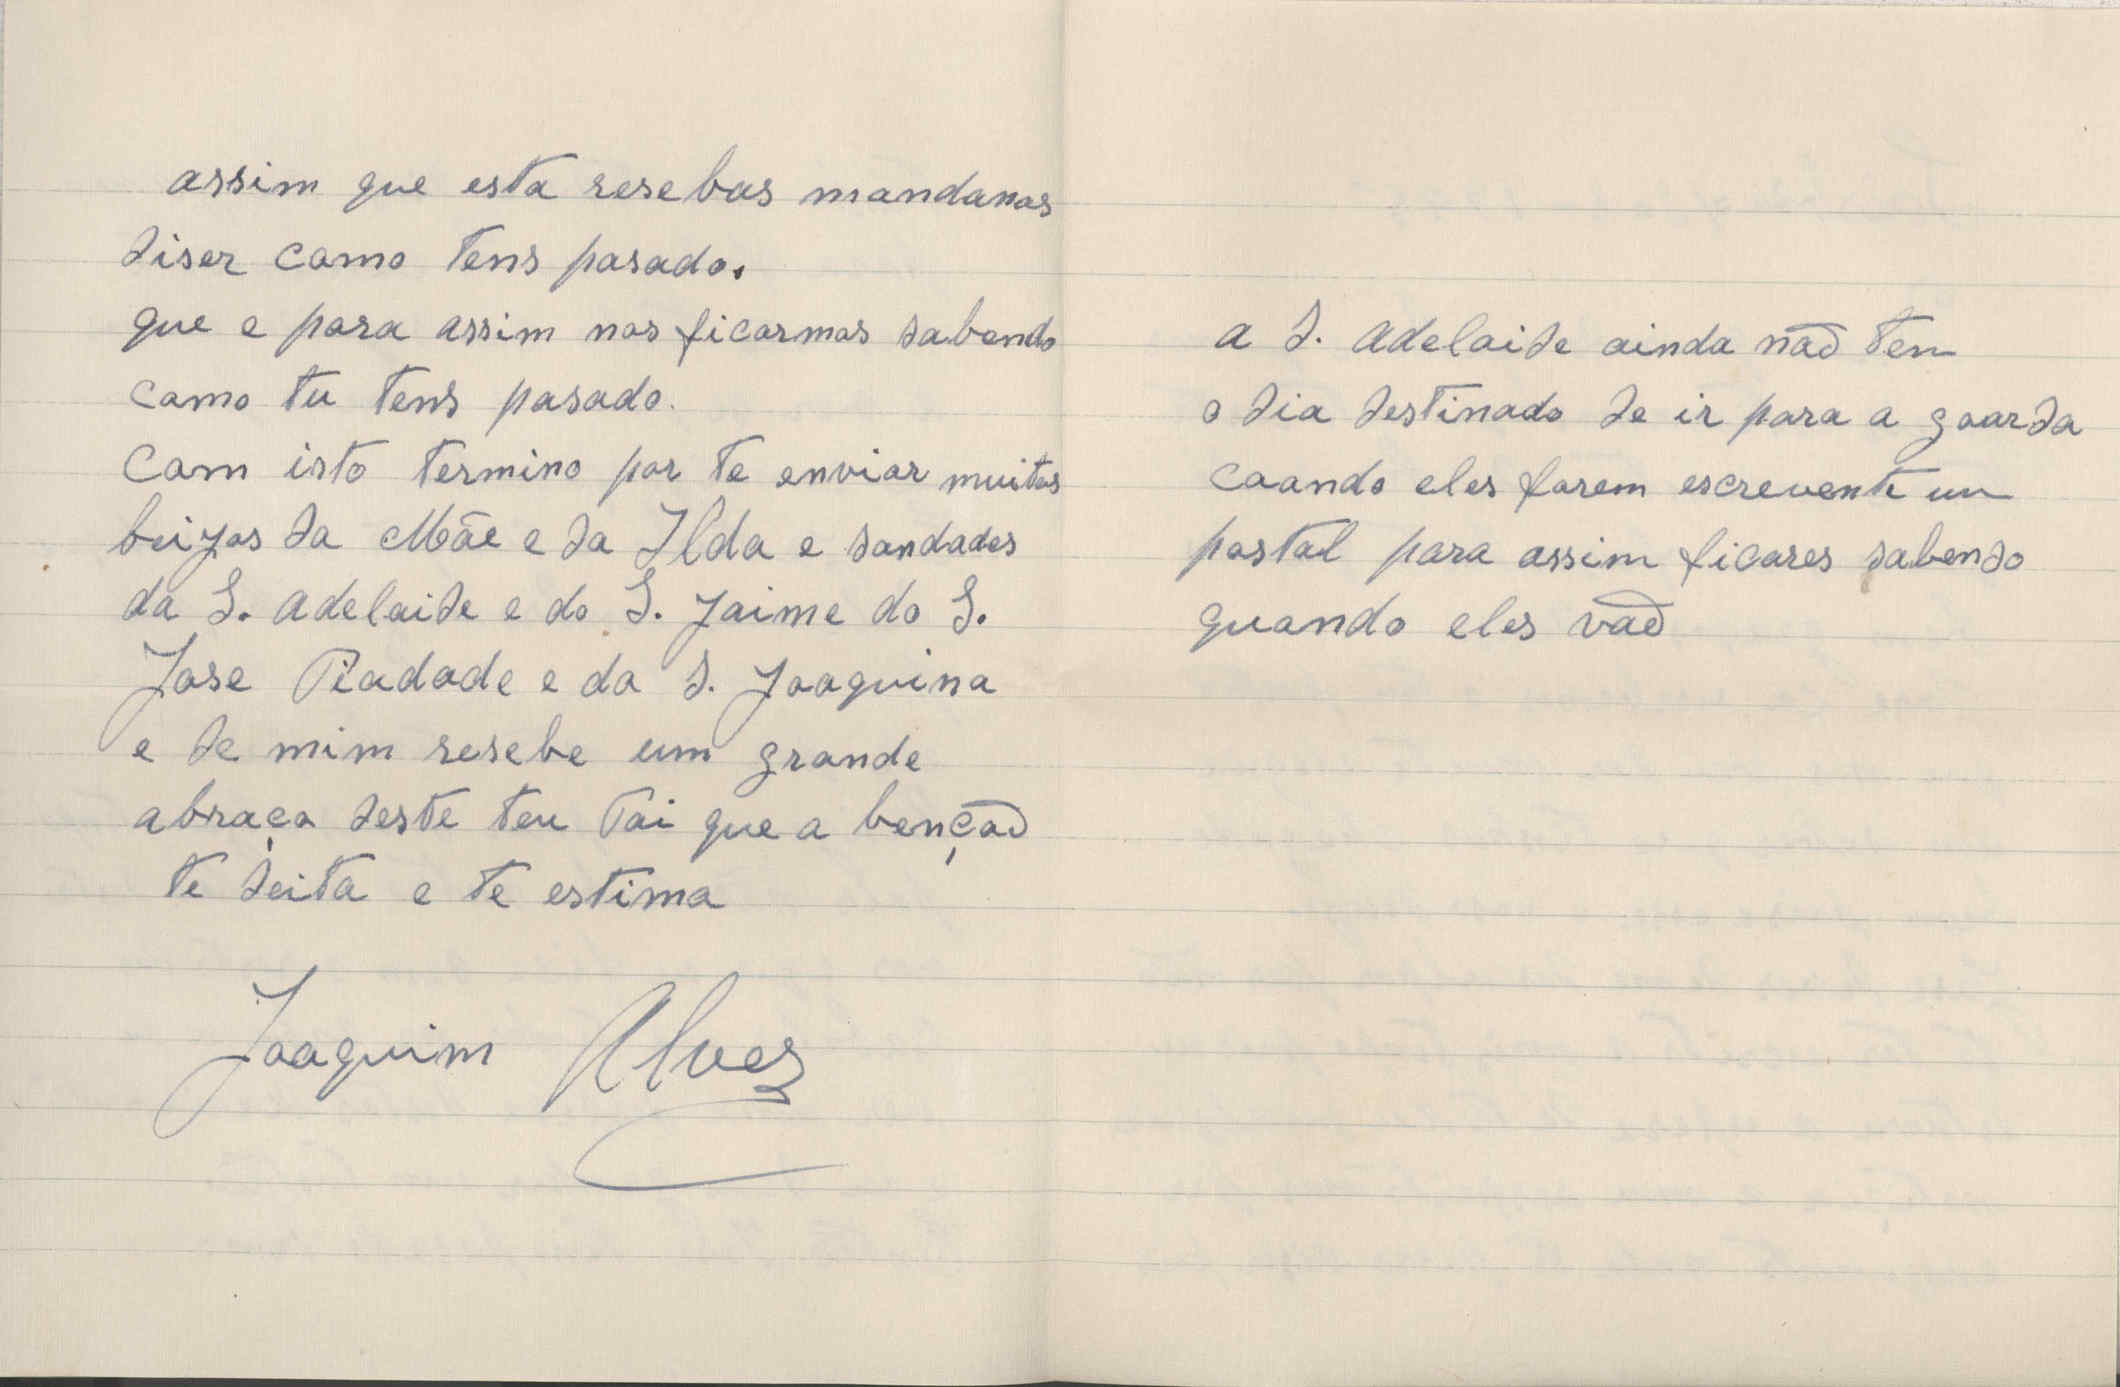 assim que esta resebas mandanos
diser como tens pasado.
que e para assim nos ficarmos sabendo
como tu tens pasado.
com isto termino por te enviar muitos
beijos da Mãe e da Ilda e saudades
da S. Adelaide e do S. Jaime do S.
Jose Piadade e da S. Joaquina
e de mim resebe um grande
abraço deste teu Pai que a bençaõ
te deita e te estima
Joaquim Alves
a S. Adelaide ainda naõ tem
o dia destinado de ir para a goarda
coando eles forem escrevente um
postal para assim ficares sabendo
quando eles vaõ